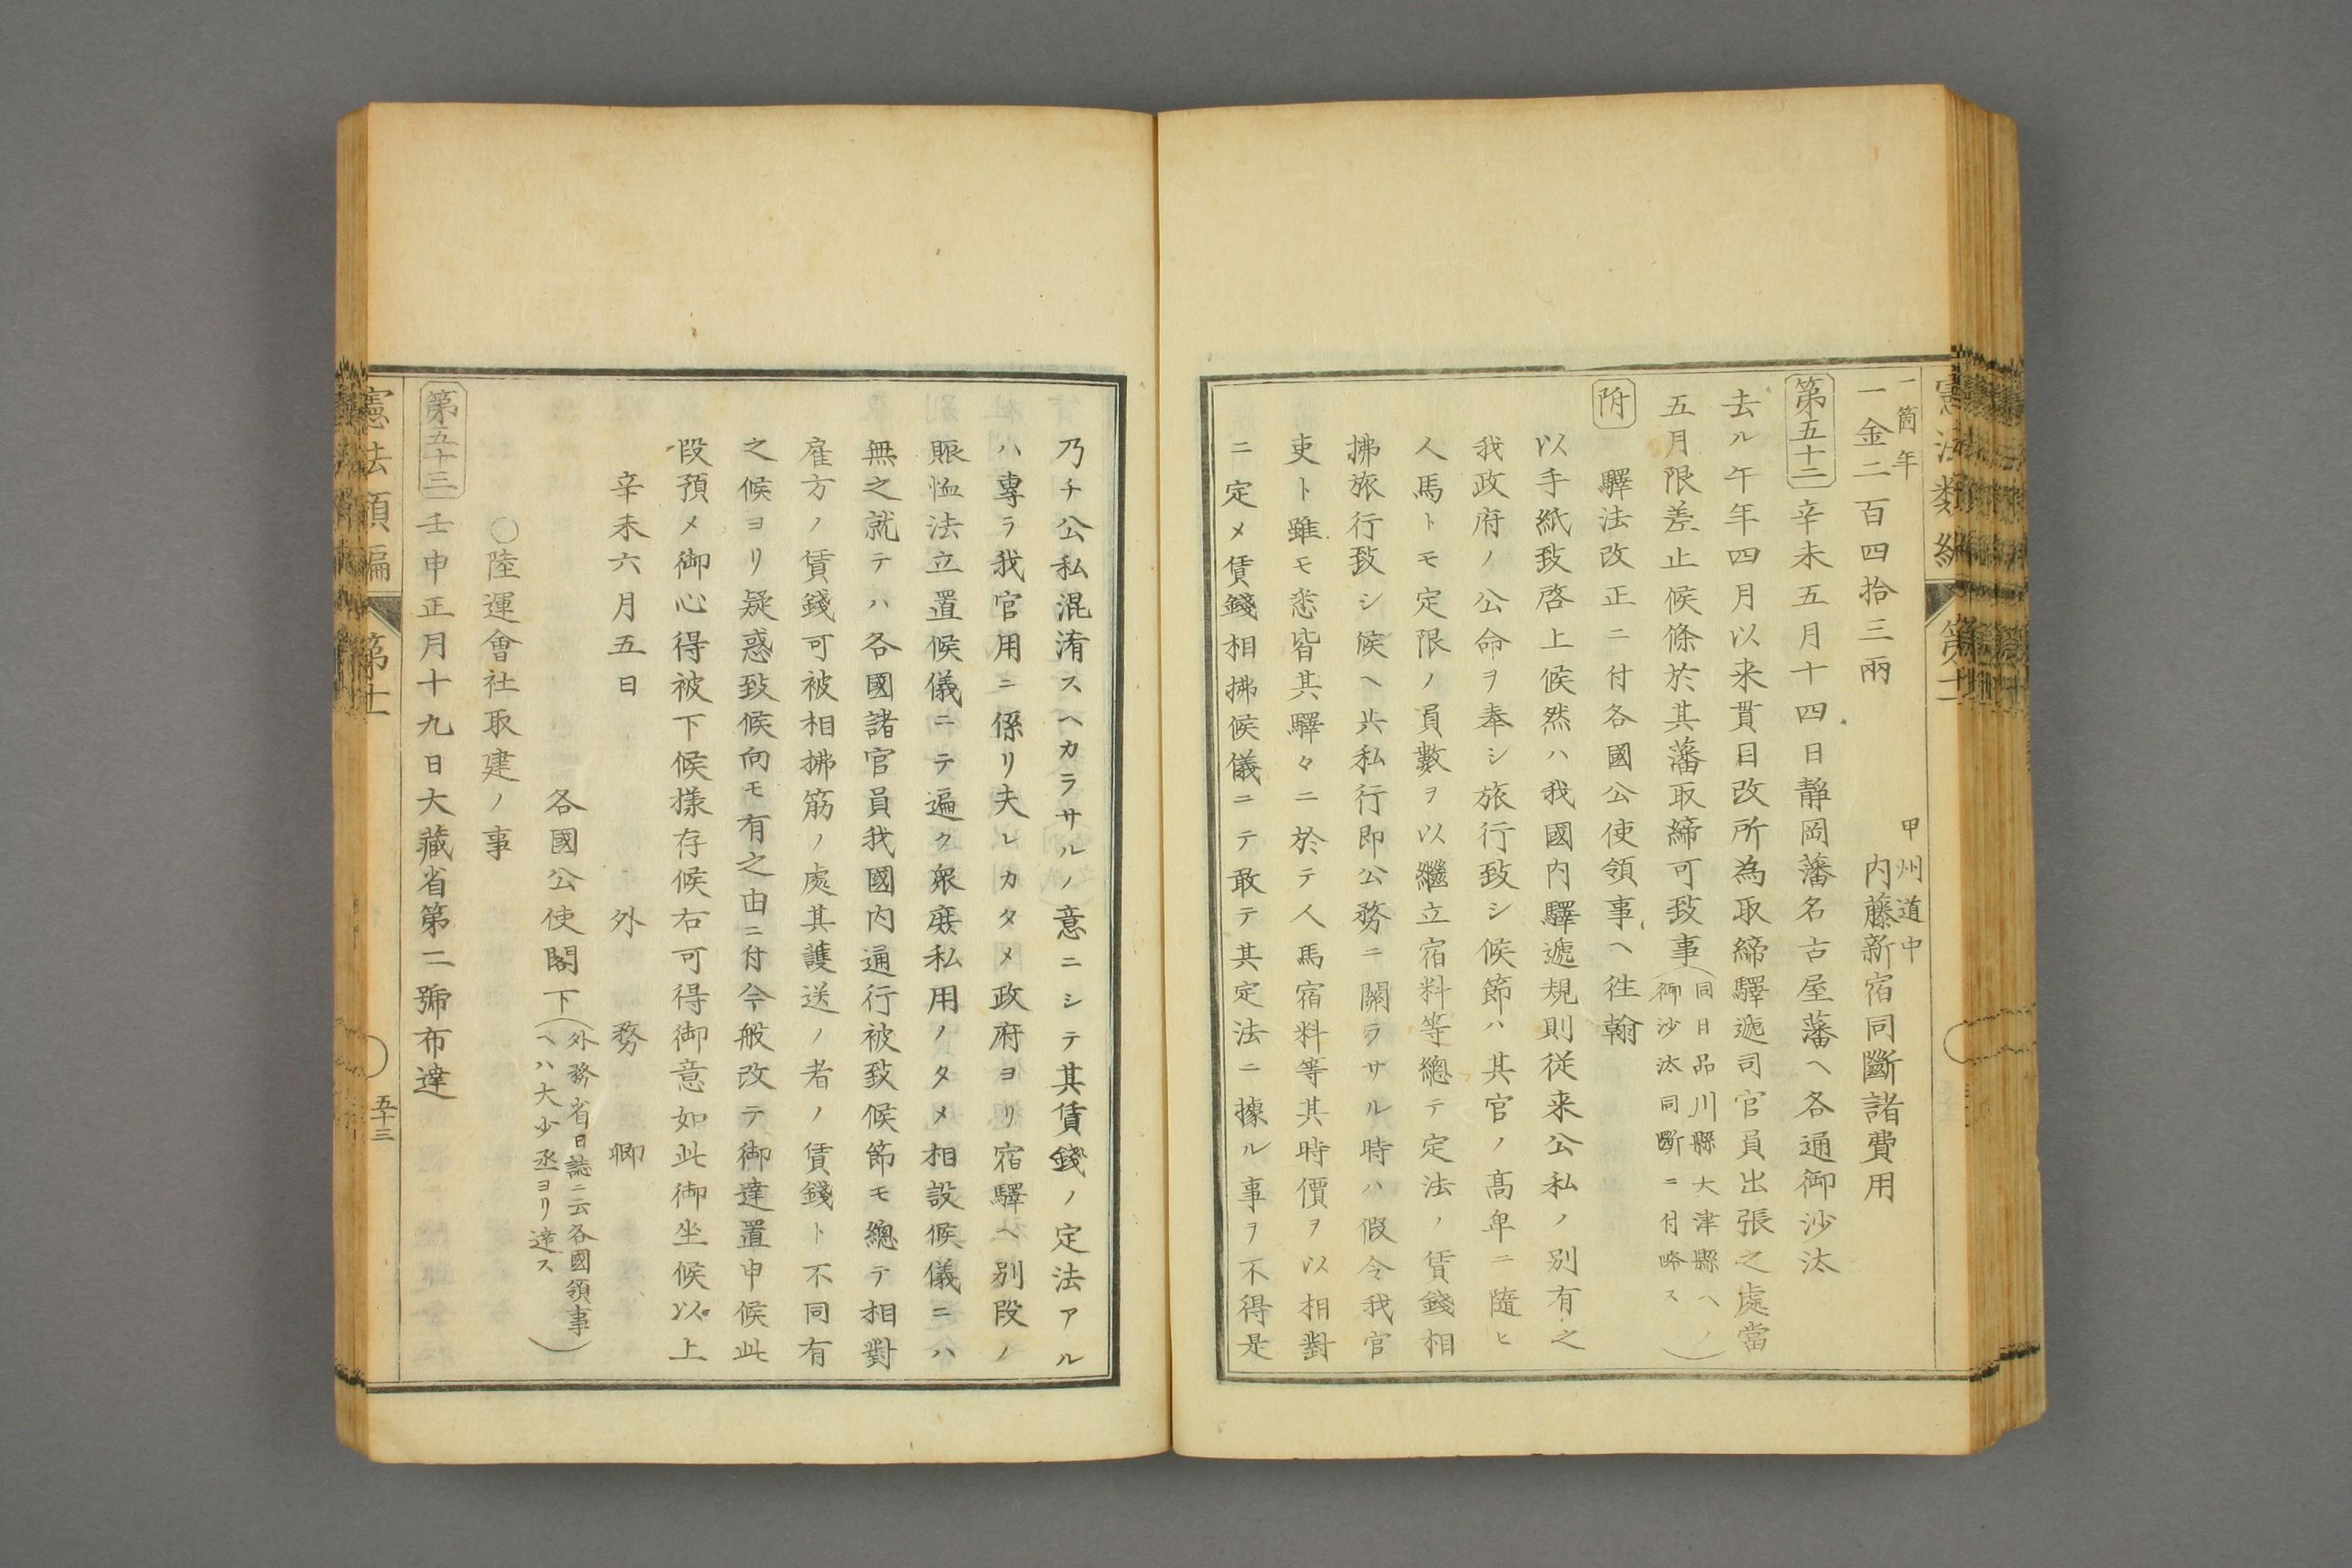 憲法類編
第十一
一箇年
一金二百四拾三兩
甲州道中
内藤新宿同斷諸費用
第五十二 辛未五月十四日静岡藩名古屋藩ヘ各通御沙汰
去ル午年四月以来貫目改所為取締驛遞司官員出張之處當
五月限差止候條於其藩取締可致事(同日品川縣大津縣ヘノ
御沙汰同斷ニ付略ス)
附 驛法改正ニ付各國公使領事ヘ往翰
以手紙致啓上候然ハ我國内驛遞規則従来公私ノ別有之
我政府ノ公命ヲ奉シ旅行致シ候節ハ其官ノ高卑ニ隨ヒ
人馬トモ定限ノ員數ヲ以繼立宿料等總テ定法ノ賃錢相
拂旅行致シ候ヘ共私行即公務ニ關ラサル時ハ假令我官
吏ト雖モ悉皆其驛々ニ於テ人馬宿料等其時價ヲ以相對
ニ定メ賃錢相拂候儀ニテ敢テ其定法ニ據ル事ヲ不得是
乃チ公私混淆スヘカラサルノ意ニシテ其賃錢ノ定法アル
ハ專ラ我官用ニ係リ夫レカタメ政府ヨリ宿驛ヘ別段ノ
賑恤法立置候儀ニテ遍ク衆庶私用ノタメ相設候儀ニハ
無之就テハ各國諸官員我國内通行被致候節モ總テ相對
雇方ノ賃錢可被相拂筋ノ處其護送ノ者ノ賃錢ト不同有
之候ヨリ疑惑致候向モ有之由ニ付今般改テ御達置申候此
段預メ御心得被下候様存候右可得御意如此御坐候以上
辛未六月五日
外務卿
各國公使閣下(外務省日誌ニ云各國領事
ヘハ大少丞ヨリ達ス)
〇陸運會社取建ノ事
第五十三 壬申正月十九日大藏省第二號布達
憲法類編
第十一
五十三